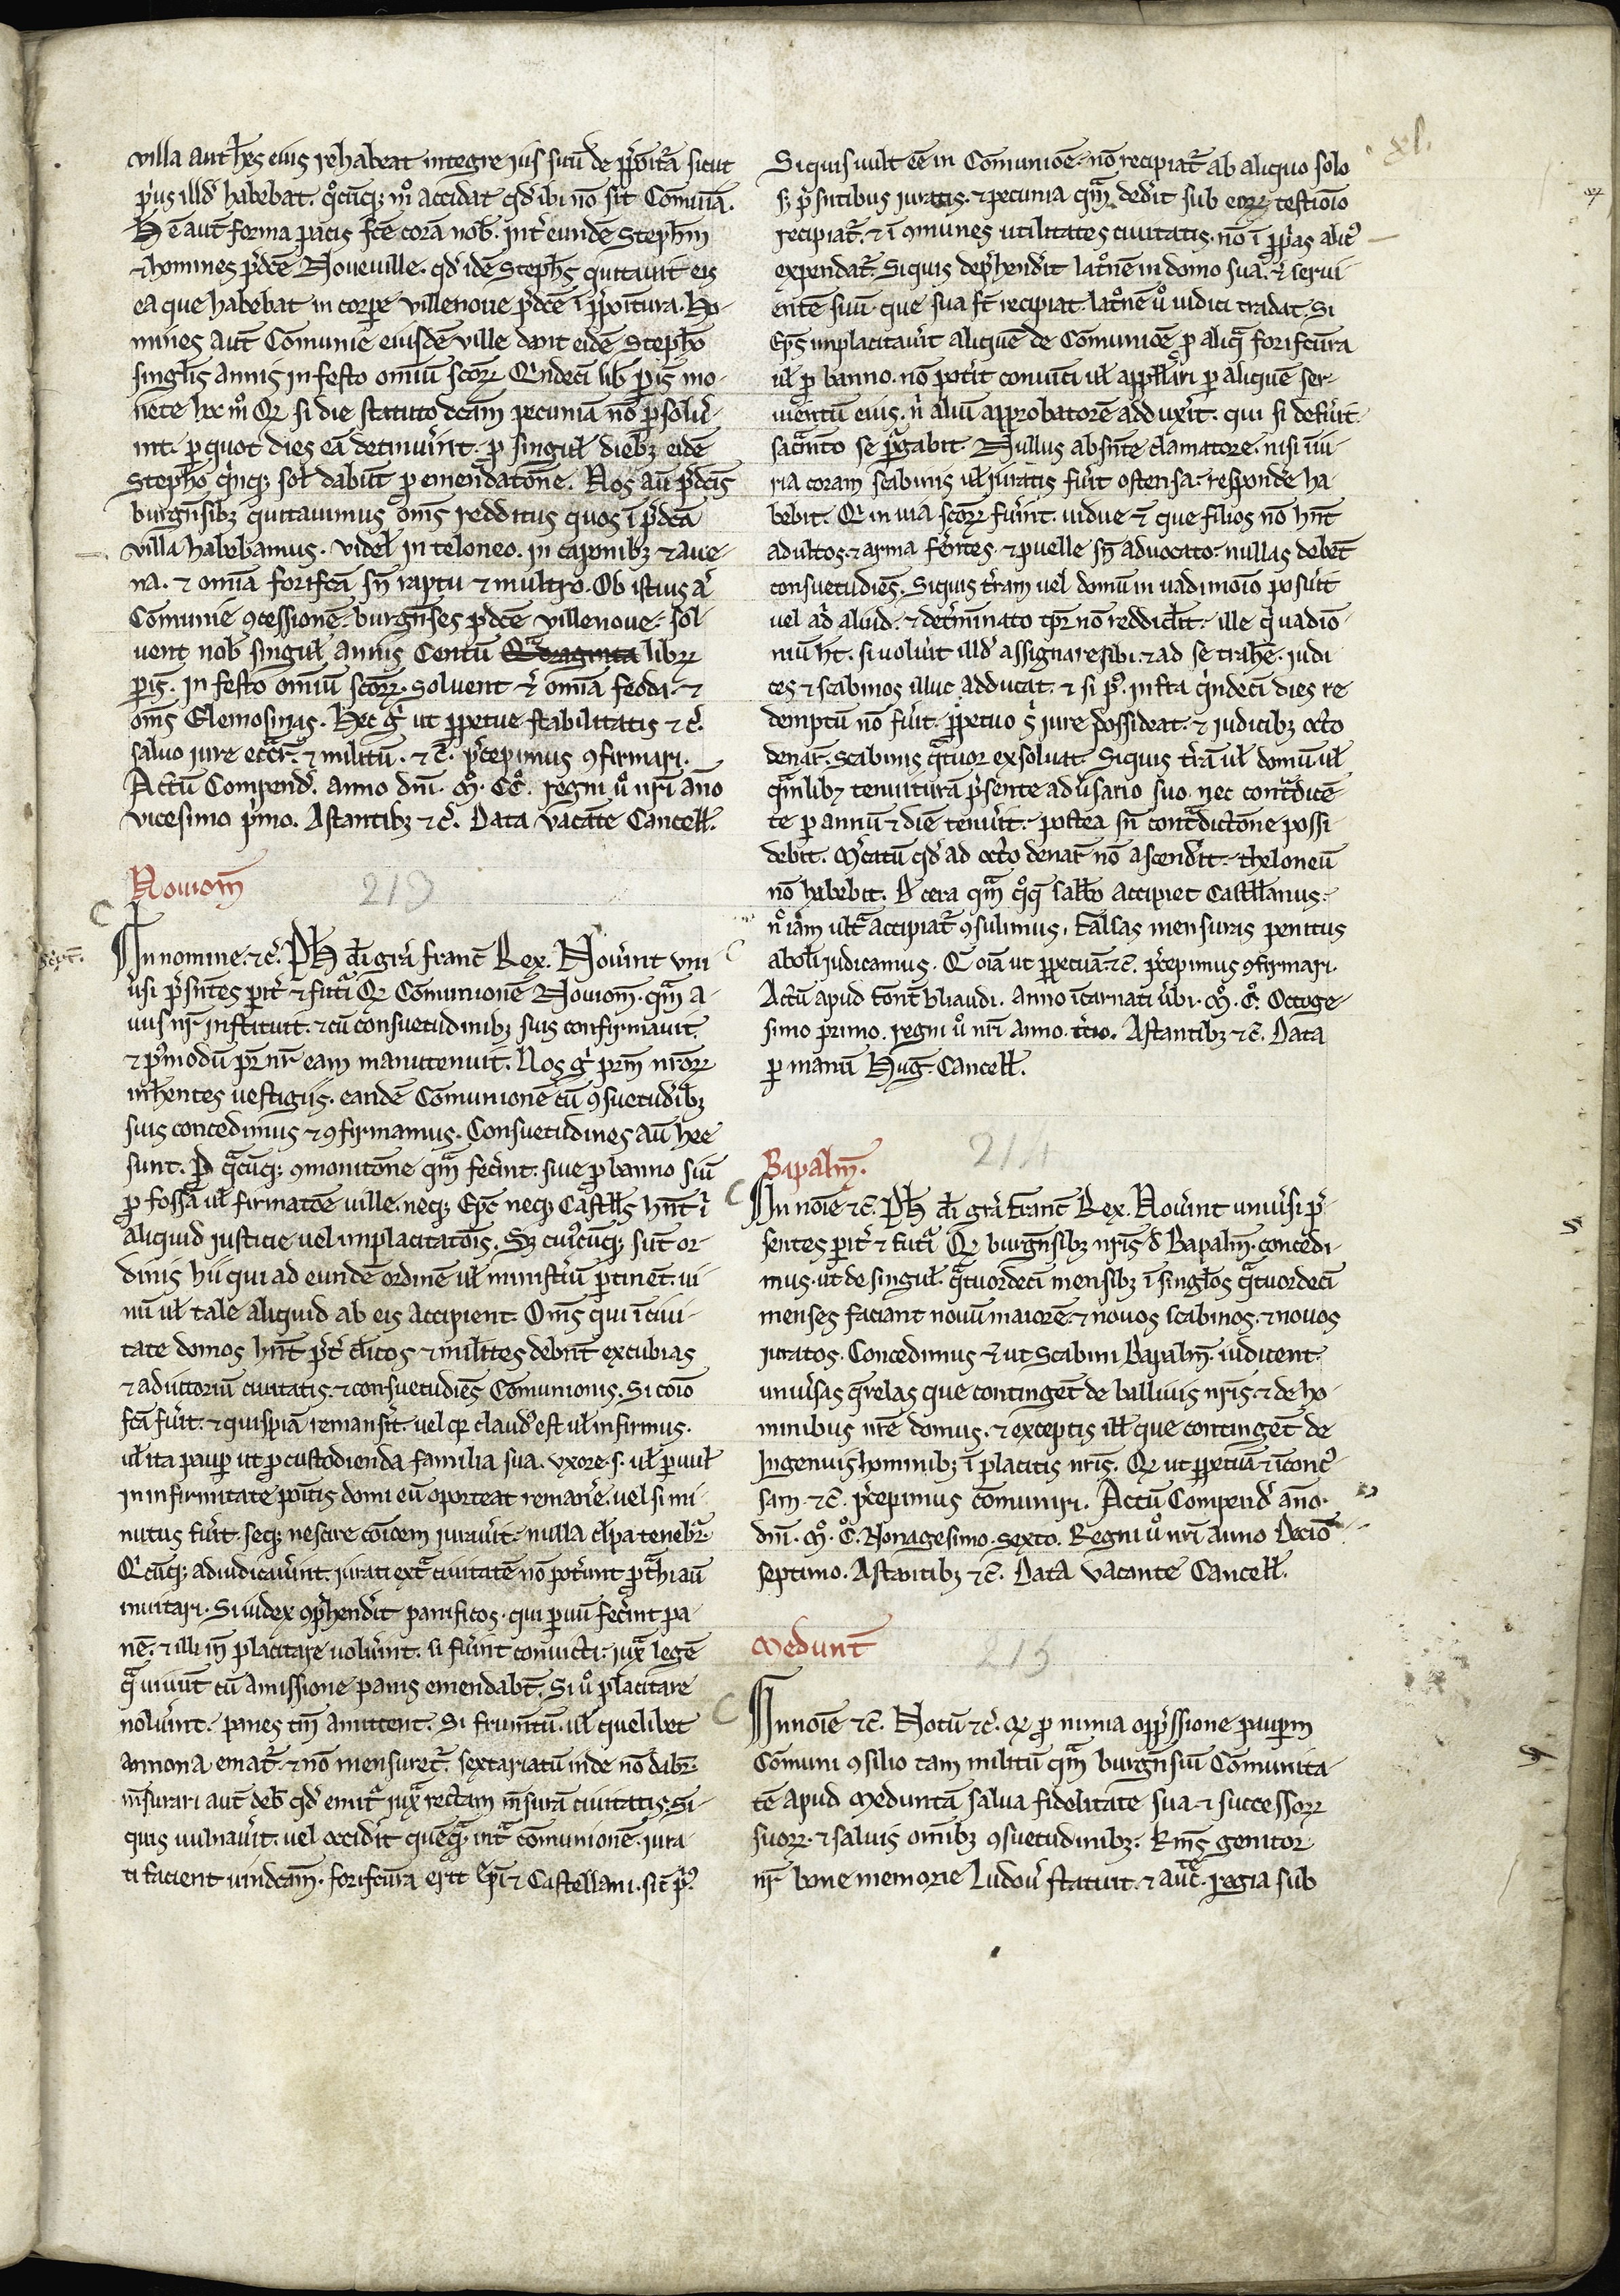 xl.
villa aut hẽs eius rehabeat integre ius suũ de p̃poit̃a sicut
p̾us illd̾ habebat. q̊cũq; m̊ accidat qd̾ ibi nõ sit Cõmuia.
H̾ ẽ aut̃ forma pacis fc̃e corã nob̾. int̾ eundẽ Steph̃m
⁊ homines p̾dc̃e Noueuille. qd̾ idẽ Steph̃s quitauit eis
ea que habebat in corpe villenoue p̾dc̃e ĩ p̃poitura. Ho-
mines aut̃ Comunie eiusdẽ ville dant eidẽ Stepho
singlis annis in festo omiũ scõꝝ Qindeci lib̾ pis̾ mo-
nete hoc m̊ Q̾ si die statuto dc̃am pecuniã nõ psolũ̾
int. p quot dies eã detinu̾int. p singul̾ dieb; eidẽ
Stepho q̾nq; sol̾ dabũt p emendatõne. Nos aũ p̾dc̃is
burgñsib; quitauimus om̃s redditus quos ĩ p̾dc̃a
villa habebamus. videl̾ in teloneo. in caponib; ⁊ aue-
na. ⁊ omĩa forifc̃a sñ raptu ⁊ multro. Ob istius aũ̾
Comunie ꝯcessionẽ. burgñses p̾dc̃e villenoue. sol-
uent nob̾ singul̾ annis Centũ Qᵃdraginta libꝝ
pis̾. in festo omiũ scõꝝ. Soluent ⁊̾ omĩa feoda. ⁊
om̃s Elemosinas. Hec g̾ ut ppetue stabilitatis ⁊c̾.
saluo iure eccl̾r̃. ⁊ militũ. ⁊c̾. p̾cepimus ꝯfirmari.
Actũ Compend̾. anno dñi. M̊. CC̊. regni ũ̊ nr̃i año
vicesimo p̾mo. Astantib; ⁊c̾. Data vacãte Cancell̾.
Nouiom̃
213
In nomine. ⁊c̾. Ph̾ di gr̃a franc̃ Rex. Nou̾int vni
u̾si p̾sñtes pit̾ ⁊ futᵃi Q̾ Cõmunionẽ Nouiom̃. qᵃm a-
uus nr̃ instituit. ⁊ cũ consuetudinib; suis confirmauit
⁊ p⁹modũ pr̃ nr̃ eam manutenuit. Nos g̾ pr̃m nr̃oꝝ
inh̾entes uestigiis. eandẽ Comunionẽ cũ ꝯsuetudib;
suis concedimus ⁊ ꝯfirmamus. Consuetudines aũ hee
sunt. P̃ qᵃcũq; ꝯmonitõne qᵃm fec̾int. siue p banno siũ
p fossa ul̾ firmatõe ville. neq; Ep̃c neq; Castell̾s hñt ĩ
aliquid iusticie uel implacitatõis. S; cui⁹cũq; sũt or-
dinis hii qui ad eundẽ ordinẽ ul̾ minist̾iũ ptinẽt. ui-
nũ ul̾ tale aliquid ab eis accipient. Om̃s qui ĩ ciui-
tate domos hñt p̾t̾ cl̾icos ⁊ milites debñt excubias
⁊ adiutoriũ ciuitatis. ⁊ consuetudiẽs Cõmunionis. Si coio
fc̃a fũ̾it. ⁊ quispiã remans̾it. uel q̾ claud⁹ est ul̾ infirmus.
ul̾ ita paup ut p custodienda familia sua. vxore. s. ul̾ puul̾
in infirmitate poitis domi eũ oporteat reman̾e. uel si mi
nutus fũ̾it. seq; nescire coicem iurau̾it. nulla cl̾pa tenebr̃.
Q̾cũq; adiudicau̾int. iurati extᵃ ciuitatẽ nõ pot̾unt ptᵃhi aũ
inuitari. Si iudex ꝯp̾hend̾it panificos. qui puũ fec̾int pa-
nẽ. ⁊ illi iñ placitare uolũ̾int. si fũ̾int conuicti. iuxᵃ legẽ
qᵃ uiuũt cũ amissione panis emendabt̃. Si ũ̊ placitare
nolũ̾int. panes tm̃ amittent. Si frumt̃ũ ul̾ quelibet
annona emat̃. ⁊ nõ mensuret̃. sextariatũ inde nõ dabr̃.
m̃surari aut̃ deb̾ qd̾ emit̃ iuxᵃ rectam m̃surã ciuitatis. Si
quis uulnau̾it. uel occid̾it quẽqᵃ. intᵃ cõmunionẽ. iura-
ti facient uindc̃am. forifctura erit ep̃i ⁊ Castellani. sic̃ p̾⁹.
Siquis uult eẽ in Cõmunioẽ. nõ recipiat̃ ab aliquo solo
s; p̾sñtibus iuratis. ⁊ pecunia qᵃm ded̾it sub eoꝝ testiõio
recipiat̃. ⁊ ĩ ꝯmunes utilitates ciuitatis. nõ ĩ pp̾as alic⁹
expendat̃. Siquis dep̾hend̾it lat̊nẽ in domo sua. ⁊̾ serui-
entẽ suũ. que sua st̃ recipiat. lat̊nẽ ũ̊ iudici tradat. Si
Ep̃s implacitau̾it aliquẽ de Cõmunioẽ p aliqᵃ forifctũra
ul̾ p banno. nõ pot̾it conuici ul̾ appell̾ari p aliquẽ ser-
uientũ eius. n̾ aliũ approbatorẽ adduxit. qui si defu̾it.
sacᵃm̃to se p̾gabit. Nullus absñte clamatore. nisi iniu
ria coram scabinis ul̾ iuratis fũ̾it ostensa. respond̾e ha
bebit. Q̾ in uia scõꝝ fũ̾int. uidue ⁊̾ que filios nõ hñt
adultos. ⁊ arma fer̃tes. ⁊ puelle sñ aduocato. nullas debẽt
consuetudiẽs. Siquis t̾ram uel domũ in uadimoĩo posu̾it
uel ad̾ aliud. ⁊ det̾minato tp̃r nõ reddid̾it. ille q̾ uadiõ
niũ ht̃. si uolũ̾it illd̾ assignare sibi. ⁊ ad se trah̾e. iudi
ces ⁊ scabinos illuc adducat. ⁊ si p⁹. infra q̾ndeci dies re
demptũ nõ fũ̾it. ppetuo s̾ iure possideat. ⁊ iudicib; octo
denar̃. Scabinis qᵃtuor exsoluat. Siquis t̾rã ul̾ domũ ul̾
qᵃmlib; tenuiturã p̾sente adu̾sario suo. nec contᵃdicẽ
te p annũ ⁊ diẽ tenu̾it. postea sñ contᵃdictõne possi
debit. M̾catũ qd̾ ad octo denar̃ nõ ascend̾it. theloneũ
nõ habebit. De cera qᵃm q̊q̾ sabb̃o accipiet Castell̾anus.
n̊ iam ultᵃ accipiat̃ ꝯsulimus. Falsas mensuras penitus
abol̾i iudicamus. Q̾ oĩa ut ppetuã. ⁊c̾. p̾cepimus ꝯfirmari.
Actũ apud Font̃ bliaudi. anno ĩcarnati u̾bi. M̊. C̊. Octoge-
simo primo. regni ũ̊ nr̃i anno. t̾cio. Astantib; ⁊c̾. Data
p manũ Hug̾. Cancell̾.
214
Bapalm̃.
In noĩe ⁊c̾. Ph̾ di gr̃a Franc̃ Rex. Nou̾int uniu̾si p̾-
sentes pit̾ ⁊ futᵃi Q̾ burgñsib; nr̃is d̾ Bapalm̃. concedi-
mus. ut de singul̾. qᵃtuordeci mensib; ĩ singl̾os qᵃtuordeci
menses faciant nouũ maiorẽ. ⁊ nouos scabinos. ⁊ nouos
iuratos. Concedimus ⁊̾ ut Scabini Bapalm̃. iudicent
uniu̾sas q̾relas que contingẽt de balliuis nr̃is. ⁊ de ho-
minibus nr̃e domus. ⁊ exceptis ill̾ que contingẽt de
Ingenuis hominib; ĩ placitis nr̃is. Q̾ ut ppetuũ ⁊ ĩconc⁹
sam. ⁊c̾. p̾cepimus cõmuniri. Actũ Compend̾ año.
dñi. M̊. C̊. Nonagesimo. sexto. Regni ũ̊ nr̃i anno Deciõ
septimo. Astantib; ⁊c̾. Data vacante Cancell̾.
Medunt̃
215
In noĩe ⁊c̾. Notũ ⁊c̾. q̾ p nimia opp̾ssione paupum
Cõmuni ꝯsilio tam militũ qᵃm burgñsiũ Cõmunita-
tẽ apud Meduntã salua fidelitate sua. ⁊ successoꝝ
suoꝝ. ⁊ saluis omib; ꝯsuetudinib;. Km̃s genitor
nr̃ bone memorie Ludou̾ statuit. ⁊ auct̃e regia sub